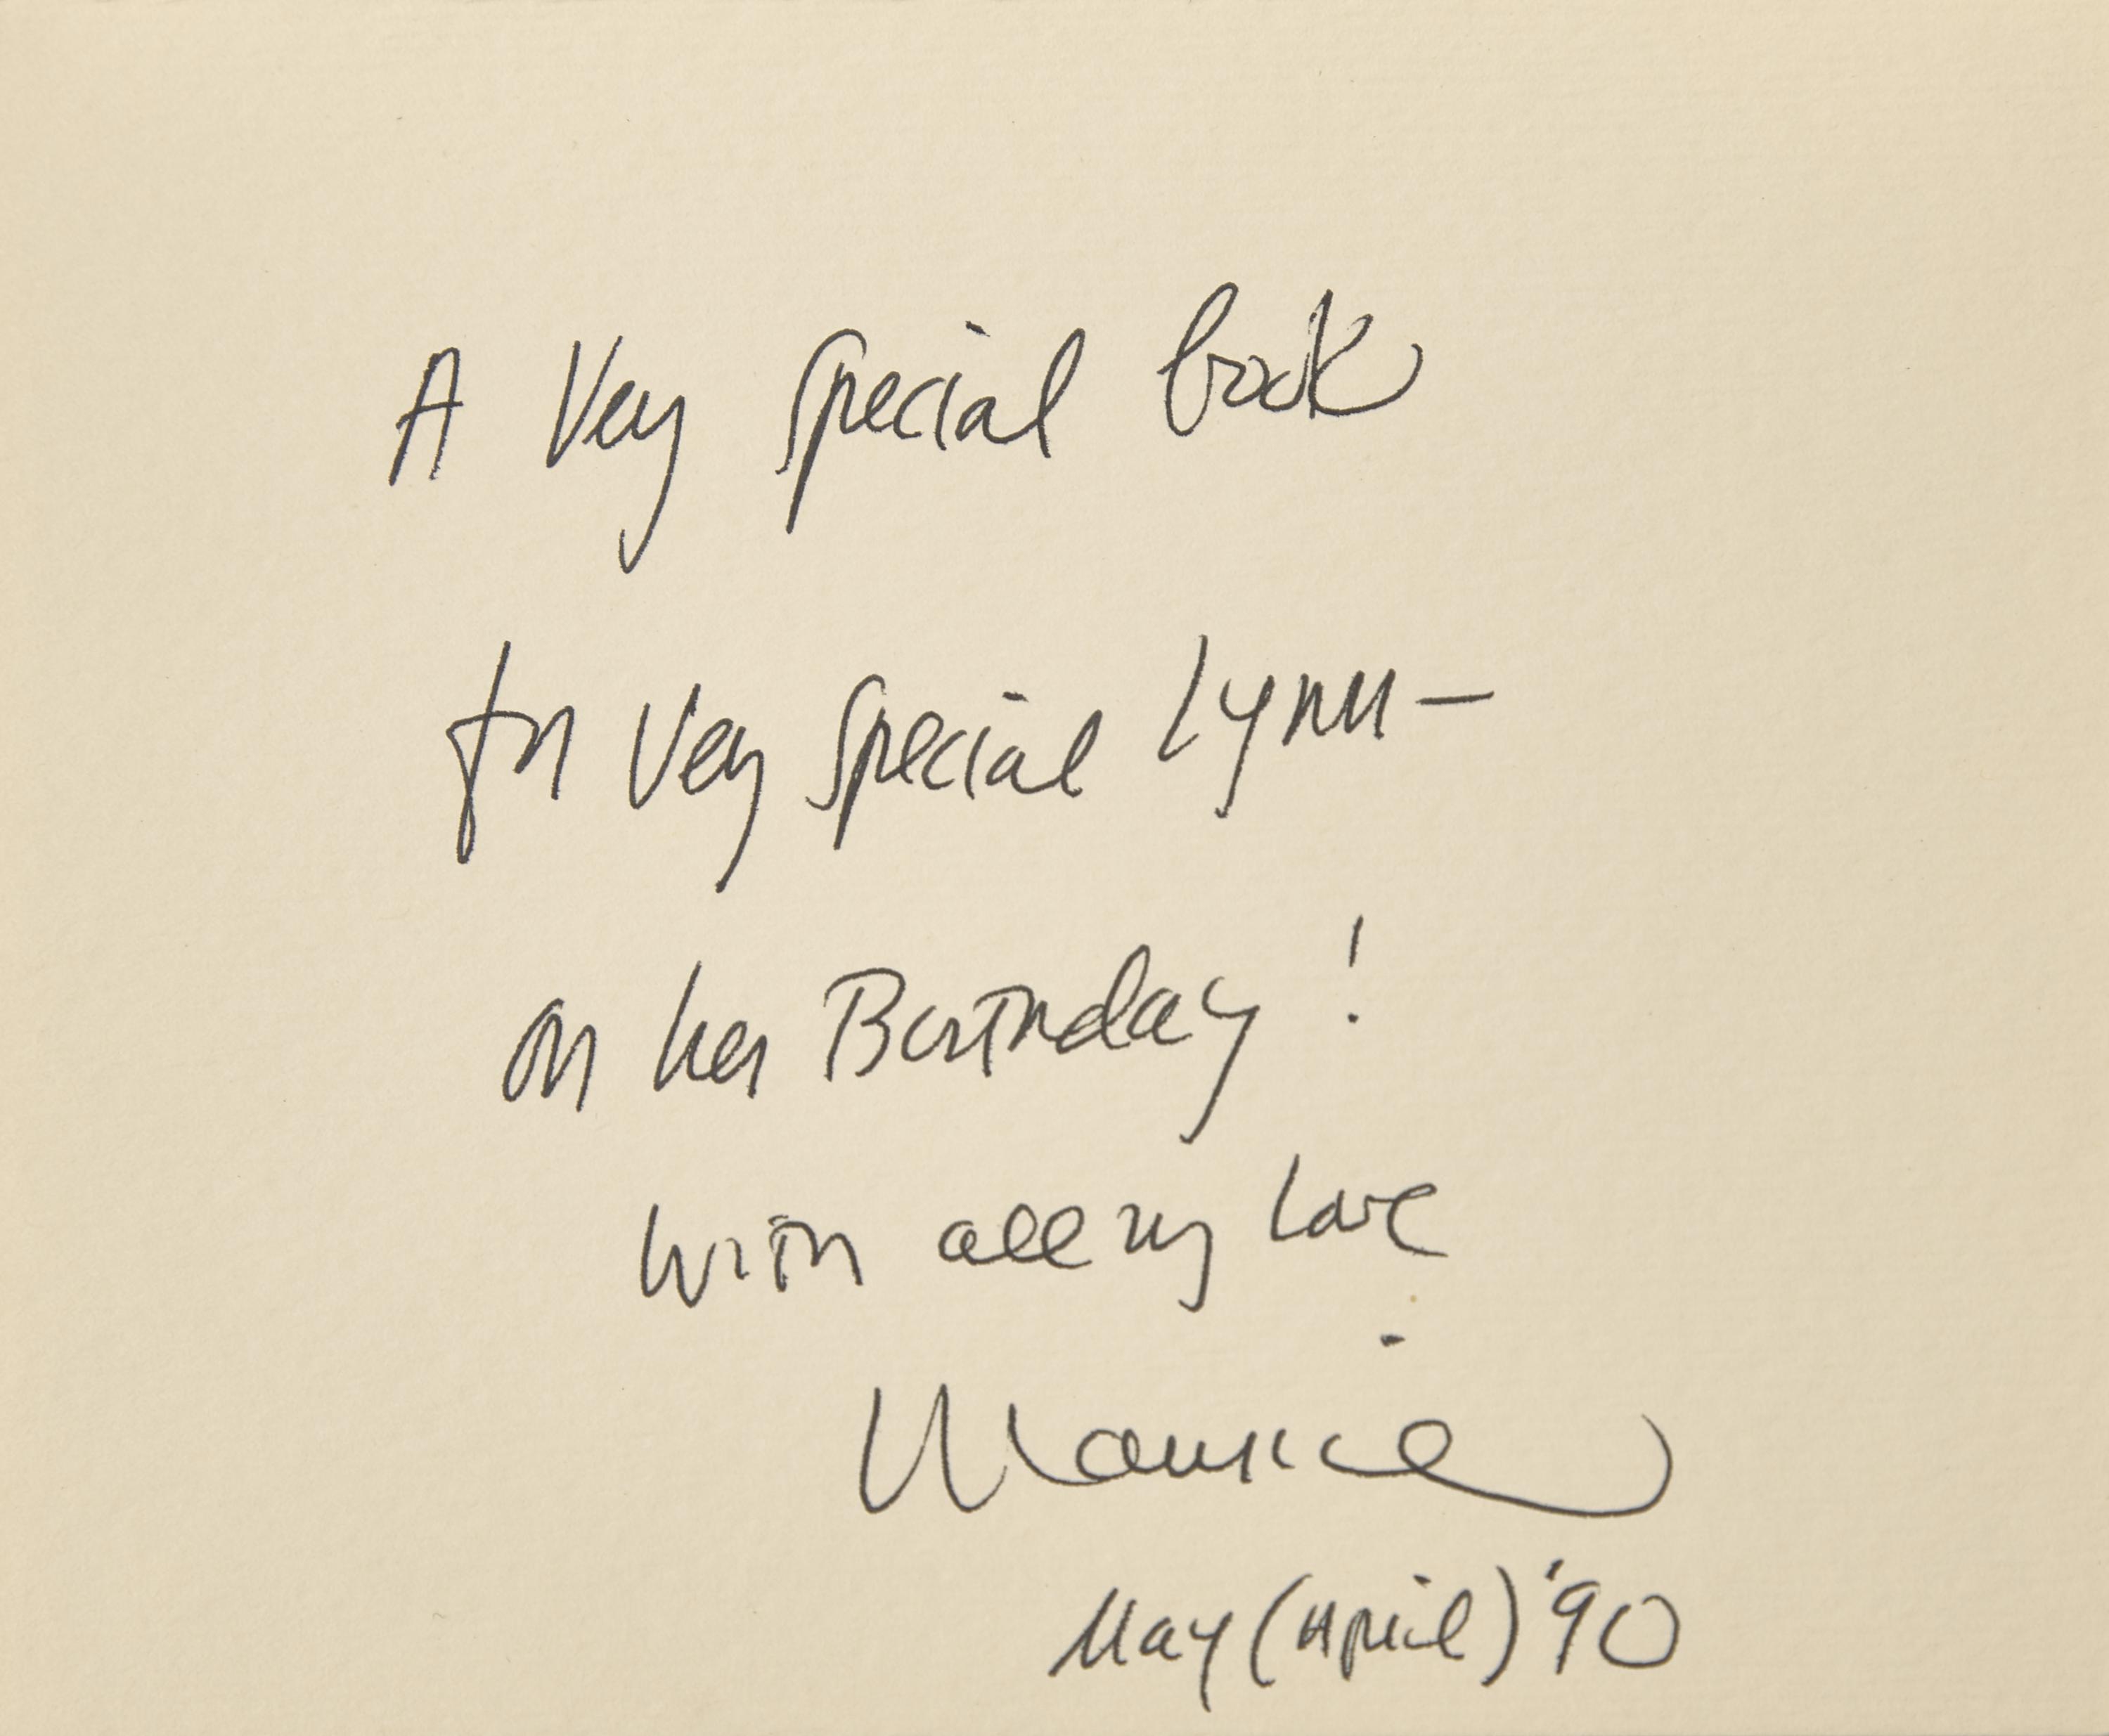 A Very Special book
for Very Special Lynn—
on her Birthday!
With all my Love
Maurice
May (April) '90